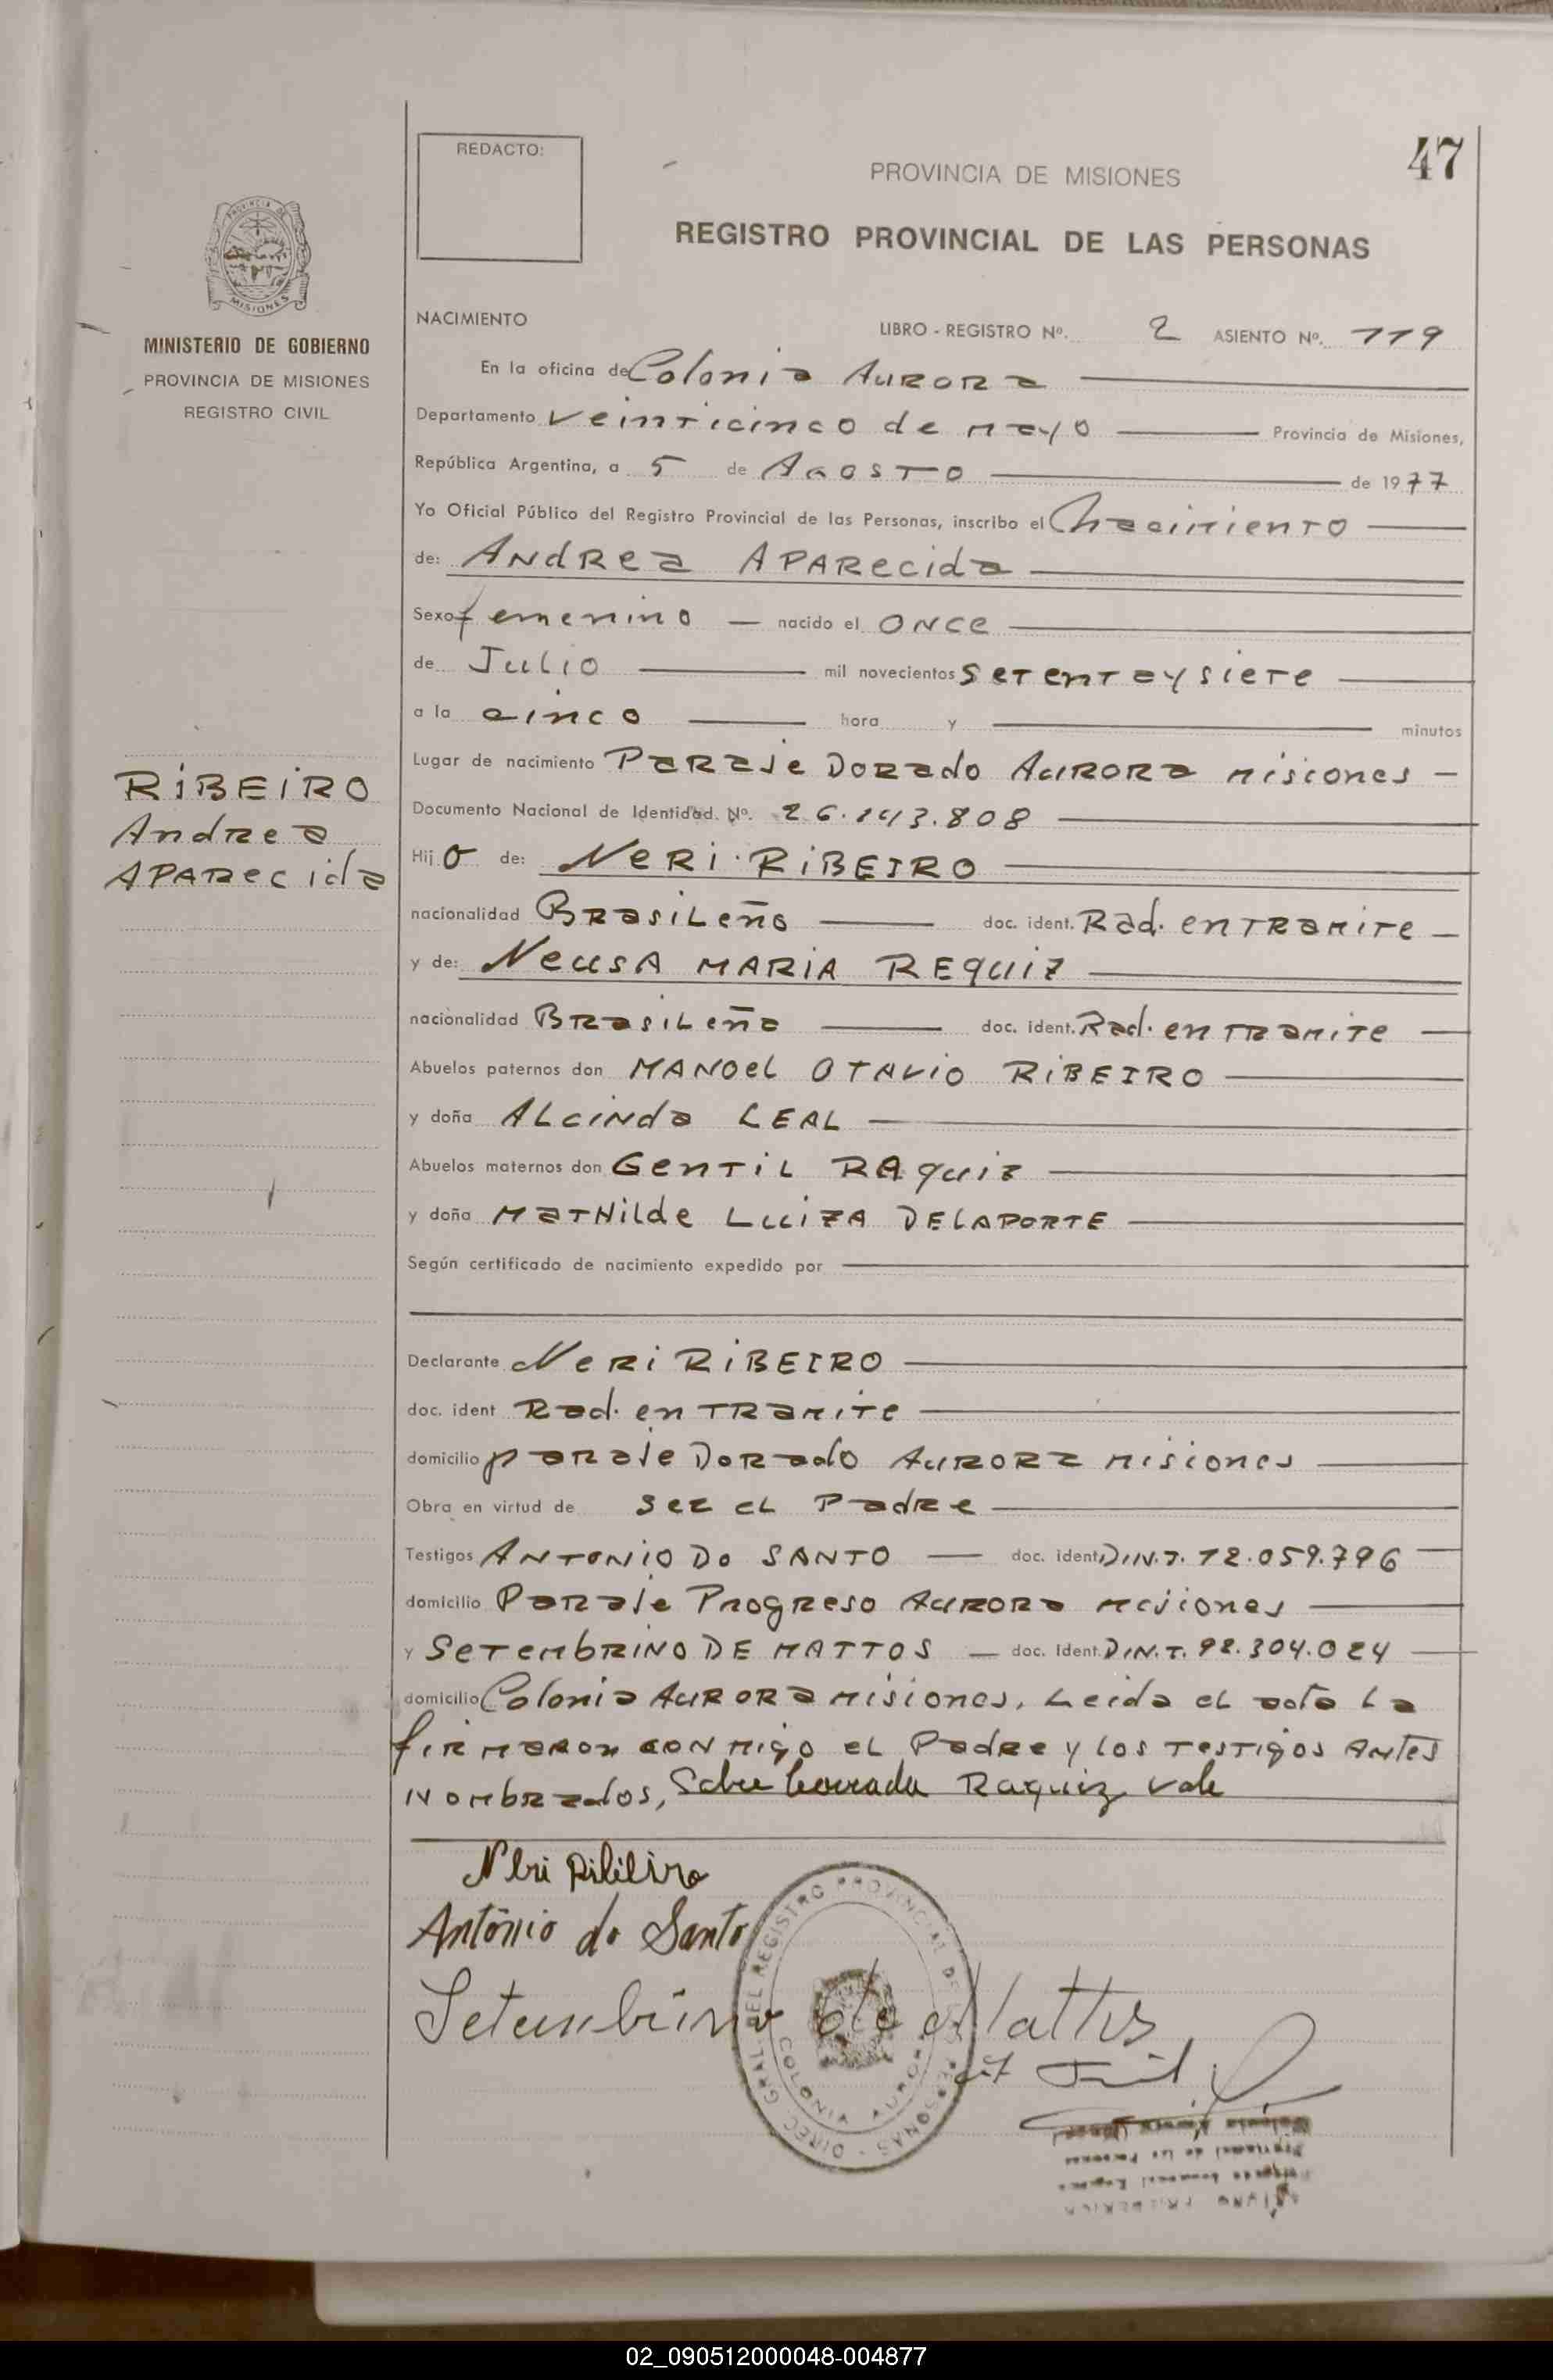 47
REDACTO:
PROVINCIA DE MISIONES
REGISTRO PROVINCIAL DE LAS PERSONAS
PROVINCIA DE
MISIONES
MINISTERIO DE GOBIERNO
PROVINCIA DE MISIONES
REGISTRO CIVIL
NACIMIENTO
LIBRO - REGISTRO Nº. 2 ASIENTO Nº. 119
En la oficina de Colonia Aurora
Departamento Veinticinco de mayo Provincia de Misiones,
República Argentina, a 5 de Agosto de 1977
Yo Oficial Público del Registro Provincial de las Personas, inscribo el Nacimiento
de: ANdRea APARecida
Sexo femenino — nacido el ONCe
de Julio mil novecientos setentaysiete
a la cinco hora y minutos
Lugar de nacimiento Paraje Dorado AURORA misiones —
RiBEiRO
Andrea
APARecida
Documento Nacional de Identidad. Nº. 26.143.808
Hijo de: NeRi RiBEIRO
nacionalidad Brasileño doc. ident. Rad. en TRamite —
y de: NeusA MARIA REquiz
nacionalidad Brasileña doc. ident. Rad. en TRamite
Abuelos paternos don MANOel OTAViO RiBEIRO
y doña ALciNda LEAL
Abuelos maternos don GenTiL RAquiz
y doña MaTHilde LUiZA DELAPORTE
Según certificado de nacimiento expedido por
Declarante NeRi RiBEIRO
doc. ident Rad. en TRamite
domicilio paraje Dorado AURORA misiones
Obra en virtud de ser el Padre
Testigos ANTONiO Do SANTO — doc. ident. D.N.T. 12.059.796
domicilio Paraje Progreso AURORA misiones
y SeTembRiNO DE MATTOS — doc. Ident. D.N.T. 92.304.024
domicilio Colonia AURORA misiones, Leida el acta La
firmaron conmigo el Padre y los testigos antes
Nombrados, Sobre borrada Raquiz vale
Neri Ribeiro
Antônio do Santo
Setembrino de Mattos
DIREC. GRAL. DEL REGISTRO PROVINCIAL DE LAS PERSONAS
COLONIA AURORA
02_090512000048-004877